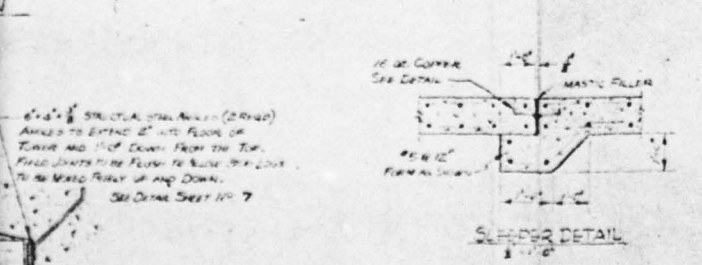 6"x4"x STRUCTURAL STEEL ANGLES (2 REQ'D)
ANGLES TO EXTEND 2" INTO FLOOR OF
TOWER AND 1'-0" DOWN FROM THE TOP.
FIELD JOINTS TO BE FLUSH TO ALLOW STOP LOGS
TO BE MOVED FREELY UP AND DOWN.
SEE DETAIL SHEET Nº 7
16 OZ. COPPER
SEE DETAIL
MASTIC FILLER
#5 @ 12"
FORM AS SHOWN
SLEEPER DETAIL